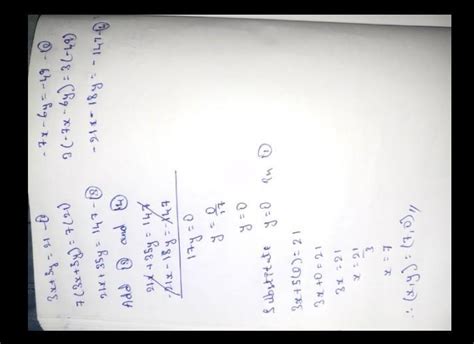 3x+5y=21 -①
7(3x+5y)=7(21)
21x+35y=147-③
-7x-6y=-49-②
3(-7x-6y)=3(-49)
-21x-18y=-147-④
Add ③ and ④
21x+35y=147
-21x-18y=-147
17y=0
y=0/17
y=0
Substitute y=0 in ①
3x+5(0)=21
3x+0=21
3x=21
x=21/3
x=7
∴(x,y)=(7,0)//